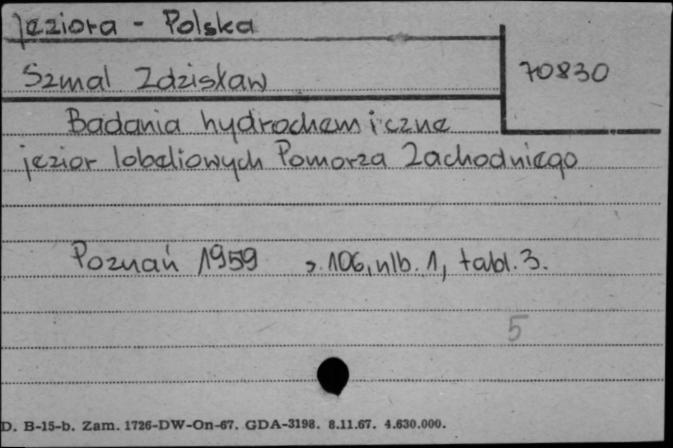 Jeziora - Polska
Szmal Zdzisław
70830
Badania hydrochemiczne
jezior lobeliowych Pomorza Zachodniego
Poznań 1959 s. 106, nlb. 1, tabl. 3.
5
D. B-15-b. Zam. 1726-DW-On-67. GDA-3198. 8.11.67. 4.630.000.